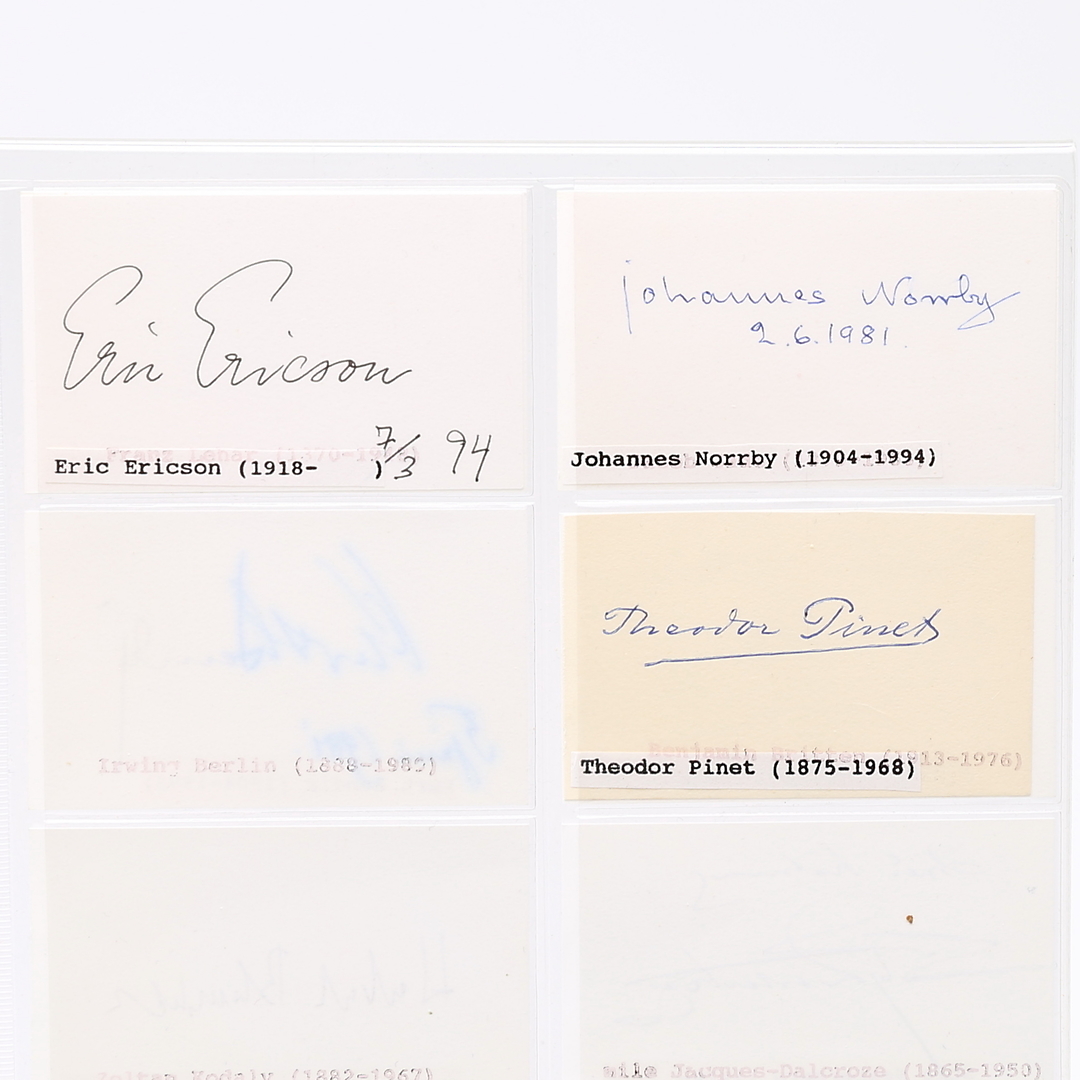 Eric Ericson
7/3 94
Franz Lehar (1870-19
Eric Ericson (1918- )
Johannes Norrby
2.6.1981.
Johannes Norrby (1904-1994)
Irwing Berlin (1888-1989)
Theodor Pinet
Benjamin Britten (1913-1976)
Theodor Pinet (1875-1968)
Zoltan Kodaly (1882-1967)
mile Jacques-Dalcroze (1865-1950)